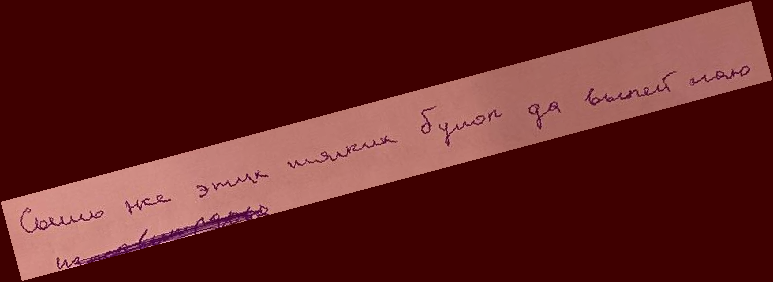 Съешь же этих мягких булок да выпей чаю
из